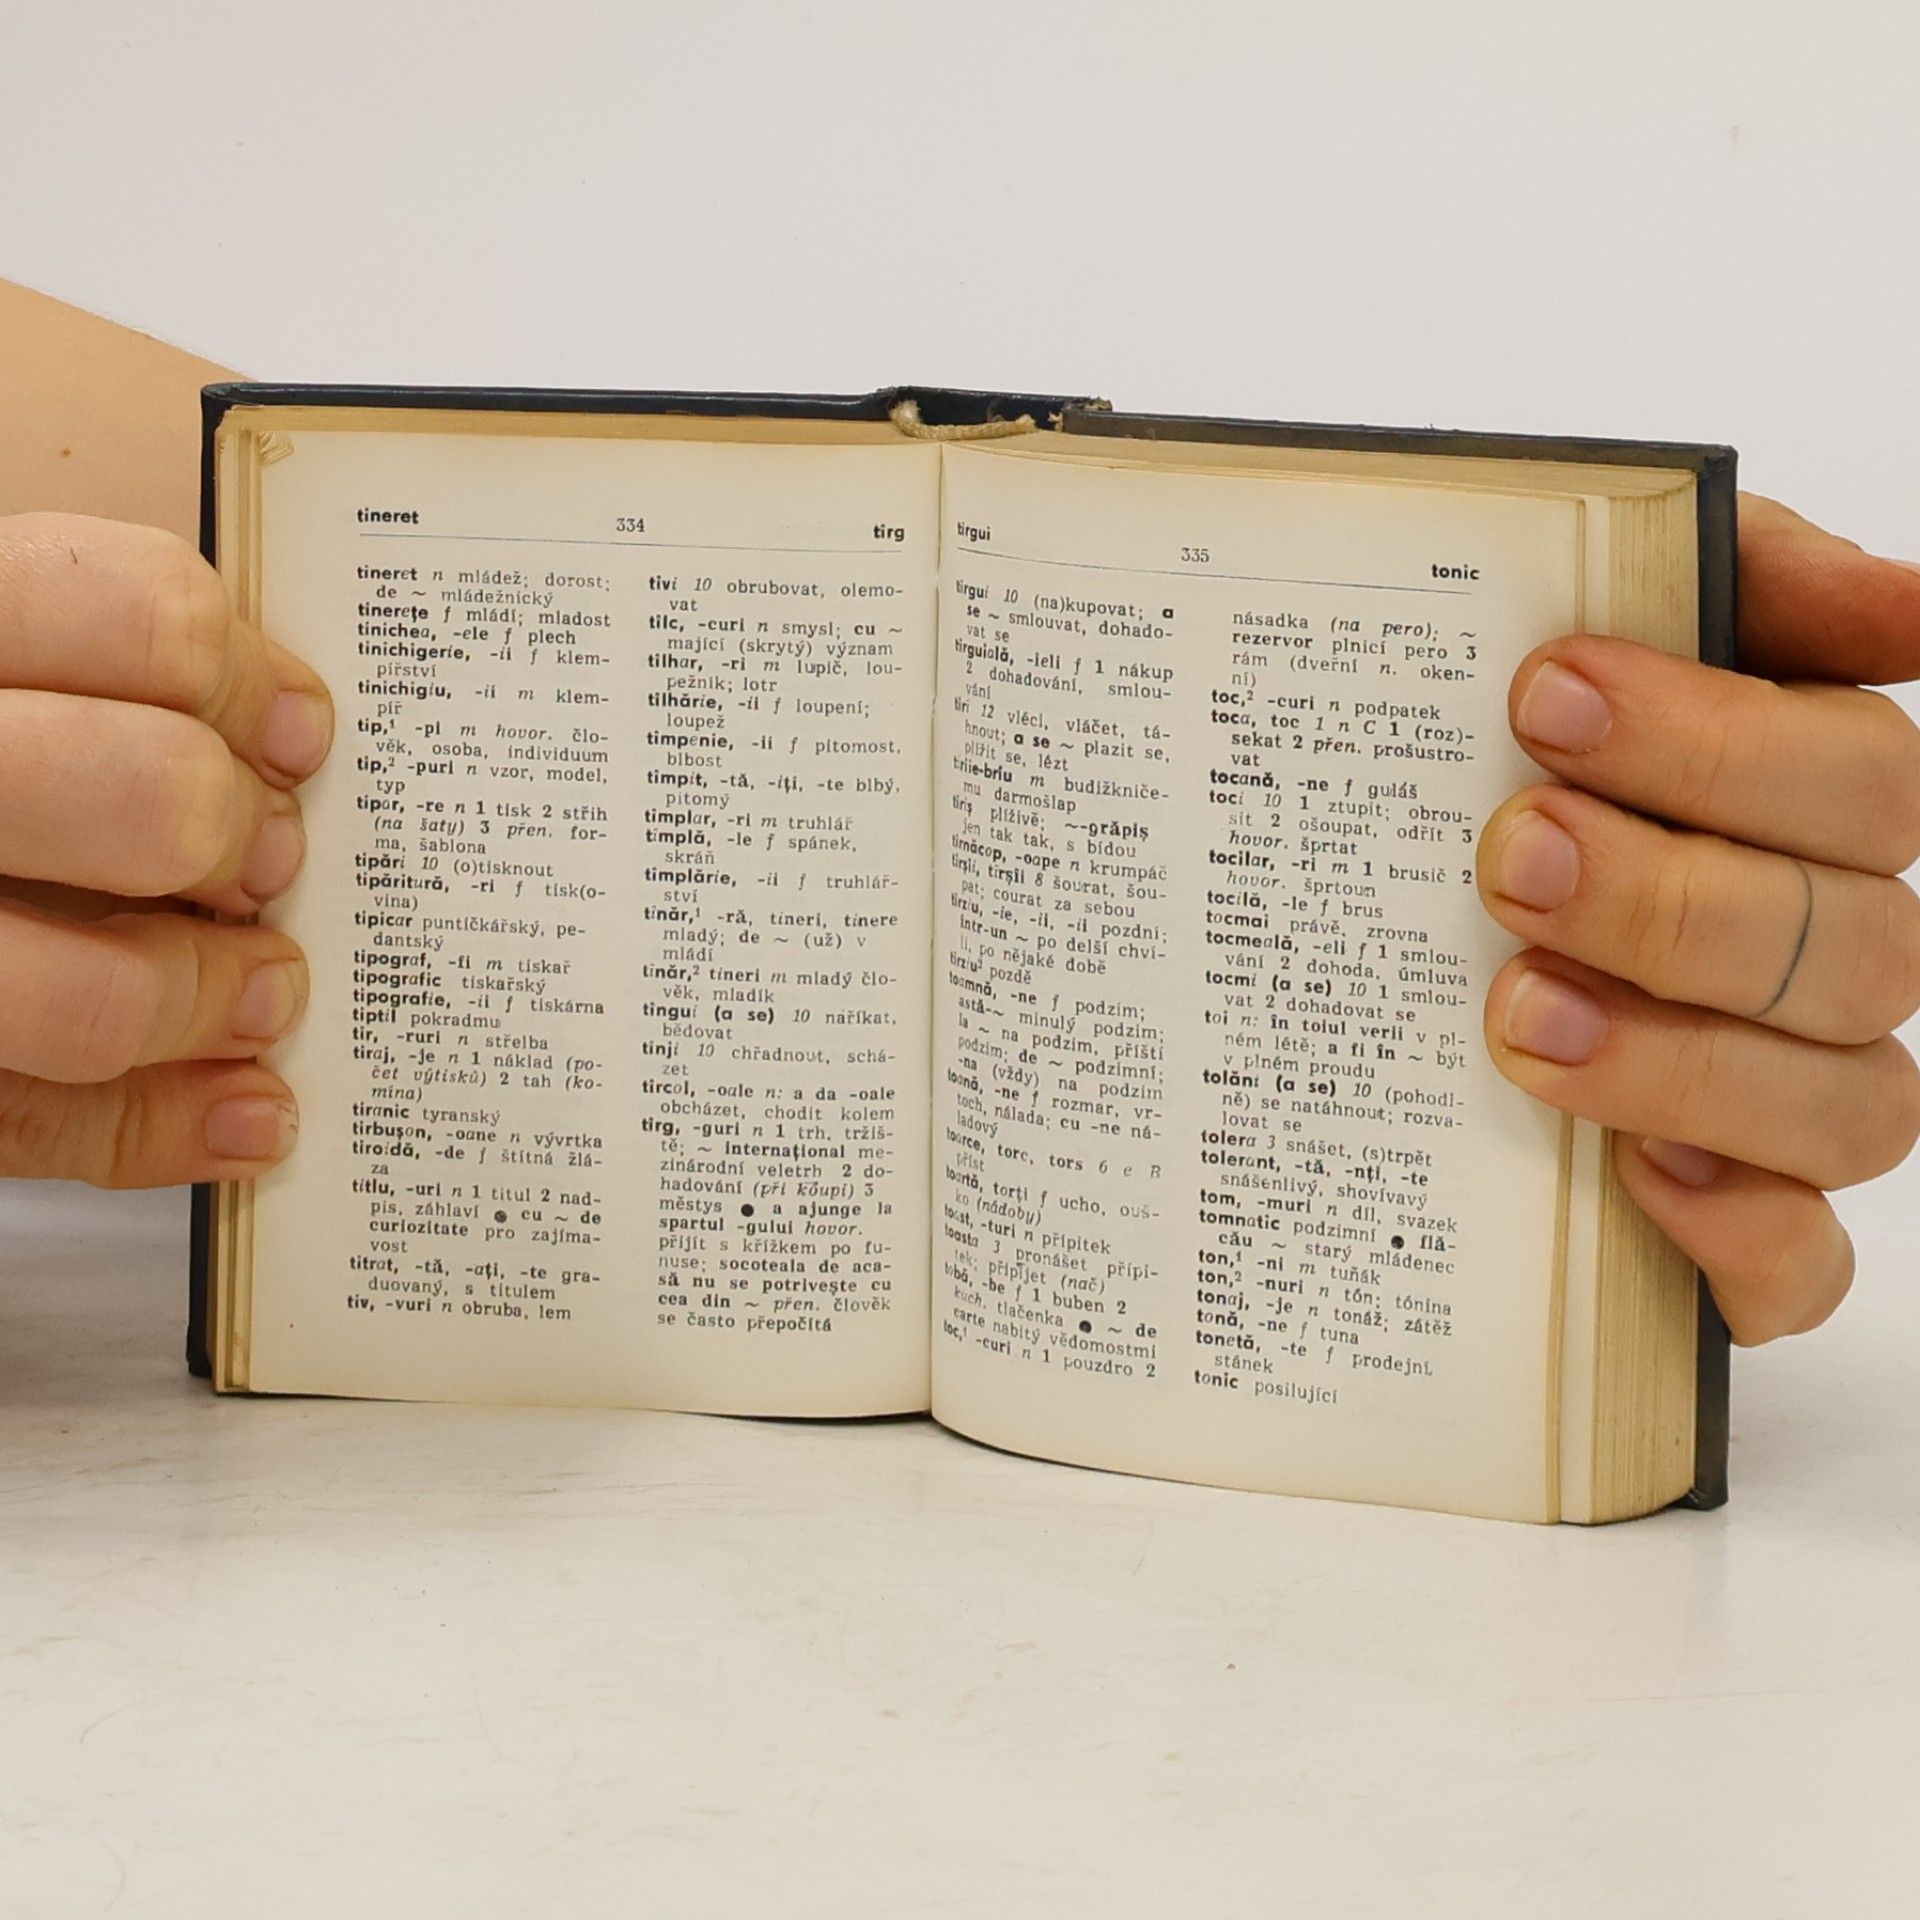 tineret 334 tîrg
tineret n mládež; dorost;
de ~ mládežnický
tinerețe f mládí; mladost
tinichea, -ele f plech
tinichigerie, -ii f klem-
pířství
tinichigiu, -ii m klem-
píř
tip,¹ -pi m hovor. člo-
věk, osoba, individuum
tip,² -puri n vzor, model,
typ
tipar, -re n 1 tisk 2 střih
(na šaty) 3 přen. for-
ma, šablona
tipări 10 (o)tisknout
tipăritură, -ri f tisk(o-
vina)
tipicar puntičkářský, pe-
dantský
tipograf, -fi m tiskař
tipografic tiskařský
tipografie, -ii f tiskárna
tiptil pokradmu
tir, -ruri n střelba
tiraj, -je n 1 náklad (po-
čet výtisků) 2 tah (ko-
mína)
tiranic tyranský
tirbușon, -oane n vývrtka
tiroidă, -de f štítná žlá-
za
titlu, -uri n 1 titul 2 nad-
pis, záhlaví ● cu ~ de
curiozitate pro zajíma-
vost
titrat, -tă, -ați, -te gra-
duovaný, s titulem
tiv, -vuri n obruba, lem
tivi 10 obrubovat, olemo-
vat
tîlc, -curi n smysl; cu ~
mající (skrytý) význam
tîlhar, -ri m lupič, lou-
pežník; lotr
tîlhărie, -ii f loupení;
loupež
tîmpenie, -ii f pitomost,
blbost
tîmpit, -tă, -iți, -te blbý,
pitomý
tîmplar, -ri m truhlář
tîmplă, -le f spánek,
skráň
tîmplărie, -ii f truhlář-
ství
tînăr,¹ -ră, tineri, tinere
mladý; de ~ (už) v
mládí
tînăr,² tineri m mladý člo-
věk, mladík
tîngui (a se) 10 naříkat,
bědovat
tînji 10 chřadnout, schá-
zet
tîrcol, -oale n: a da -oale
obcházet, chodit kolem
tîrg, -guri n 1 trh, tržiš-
tě; ~ internațional me-
zinárodní veletrh 2 do-
hadování (při koupi) 3
městys ● a ajunge la
spartul -gului hovor.
přijít s křížkem po fu-
nuse; socoteala de aca-
să nu se potrivește cu
cea din ~ přen. člověk
se často přepočítá
tîrgui 335 tonic
tîrgui 10 (na)kupovat; a
se ~ smlouvat, dohado-
vat se
tîrguială, -ieli f 1 nákup
2 dohadování, smlou-
vání
tîrî 12 vléci, vláčet, tá-
hnout; a se ~ plazit se,
plížit se, lézt
tîrîie-brîu m budižkniče-
mu darmošlap
tîrîș plíživě; ~-grăpiș
jen tak tak, s bídou
tîrnăcop, -oape n krumpáč
tîrșîi, tîrșîi 8 šourat, šou-
pat; courat za sebou
tîrziu, -ie, -ii, -ii pozdní;
într-un ~ po delší chví-
li, po nějaké době
tîrziu² pozdě
toamnă, -ne f podzim;
astă-~ minulý podzim;
la ~ na podzim, příští
podzim; de ~ podzimní;
-na (vždy) na podzim
toană, -ne f rozmar, vr-
toch, nálada; cu -ne ná-
ladový
toarce, torc, tors 6 e B
příst
toartă, torți f ucho, ouš-
ko (nádoby)
toast, -turi n přípitek
toasta 3 pronášet přípi-
tek; připíjet (nač)
tobă, -be f 1 buben 2
kuch. tlačenka ● ~ de
carte nabitý vědomostmi
toc,¹ -curi n 1 pouzdro 2
násadka (na pero); ~
rezervor plnicí pero 3
rám (dveřní n. oken-
ní)
toc,² -curi n podpatek
toca, toc 1 n C 1 (roz)-
sekat 2 přen. prošustro-
vat
tocană, -ne f guláš
toci 10 1 ztupit; obrou-
sit 2 ošoupat, odřít 3
hovor. šprtat
tocilar, -ri m 1 brusič 2
hovor. šprtoun
tocilă, -le f brus
tocmai právě, zrovna
tocmeală, -eli f 1 smlou-
vání 2 dohoda, úmluva
tocmi (a se) 10 1 smlou-
vat 2 dohadovat se
toi n: în toiul verii v pl-
ném létě; a fi în ~ být
v plném proudu
tolăni (a se) 10 (pohodl-
ně) se natáhnout; rozva-
lovat se
tolera 3 snášet, (s)trpět
tolerant, -tă, -nți, -te
snášenlivý, shovívavý
tom, -muri n díl, svazek
tomnatic podzimní ● flă-
cău ~ starý mládenec
ton,¹ -ni m tuňák
ton,² -nuri n tón; tónina
tonaj, -je n tonáž; zátěž
tonă, -ne f tuna
tonetă, -te f prodejní
stánek
tonic posilující